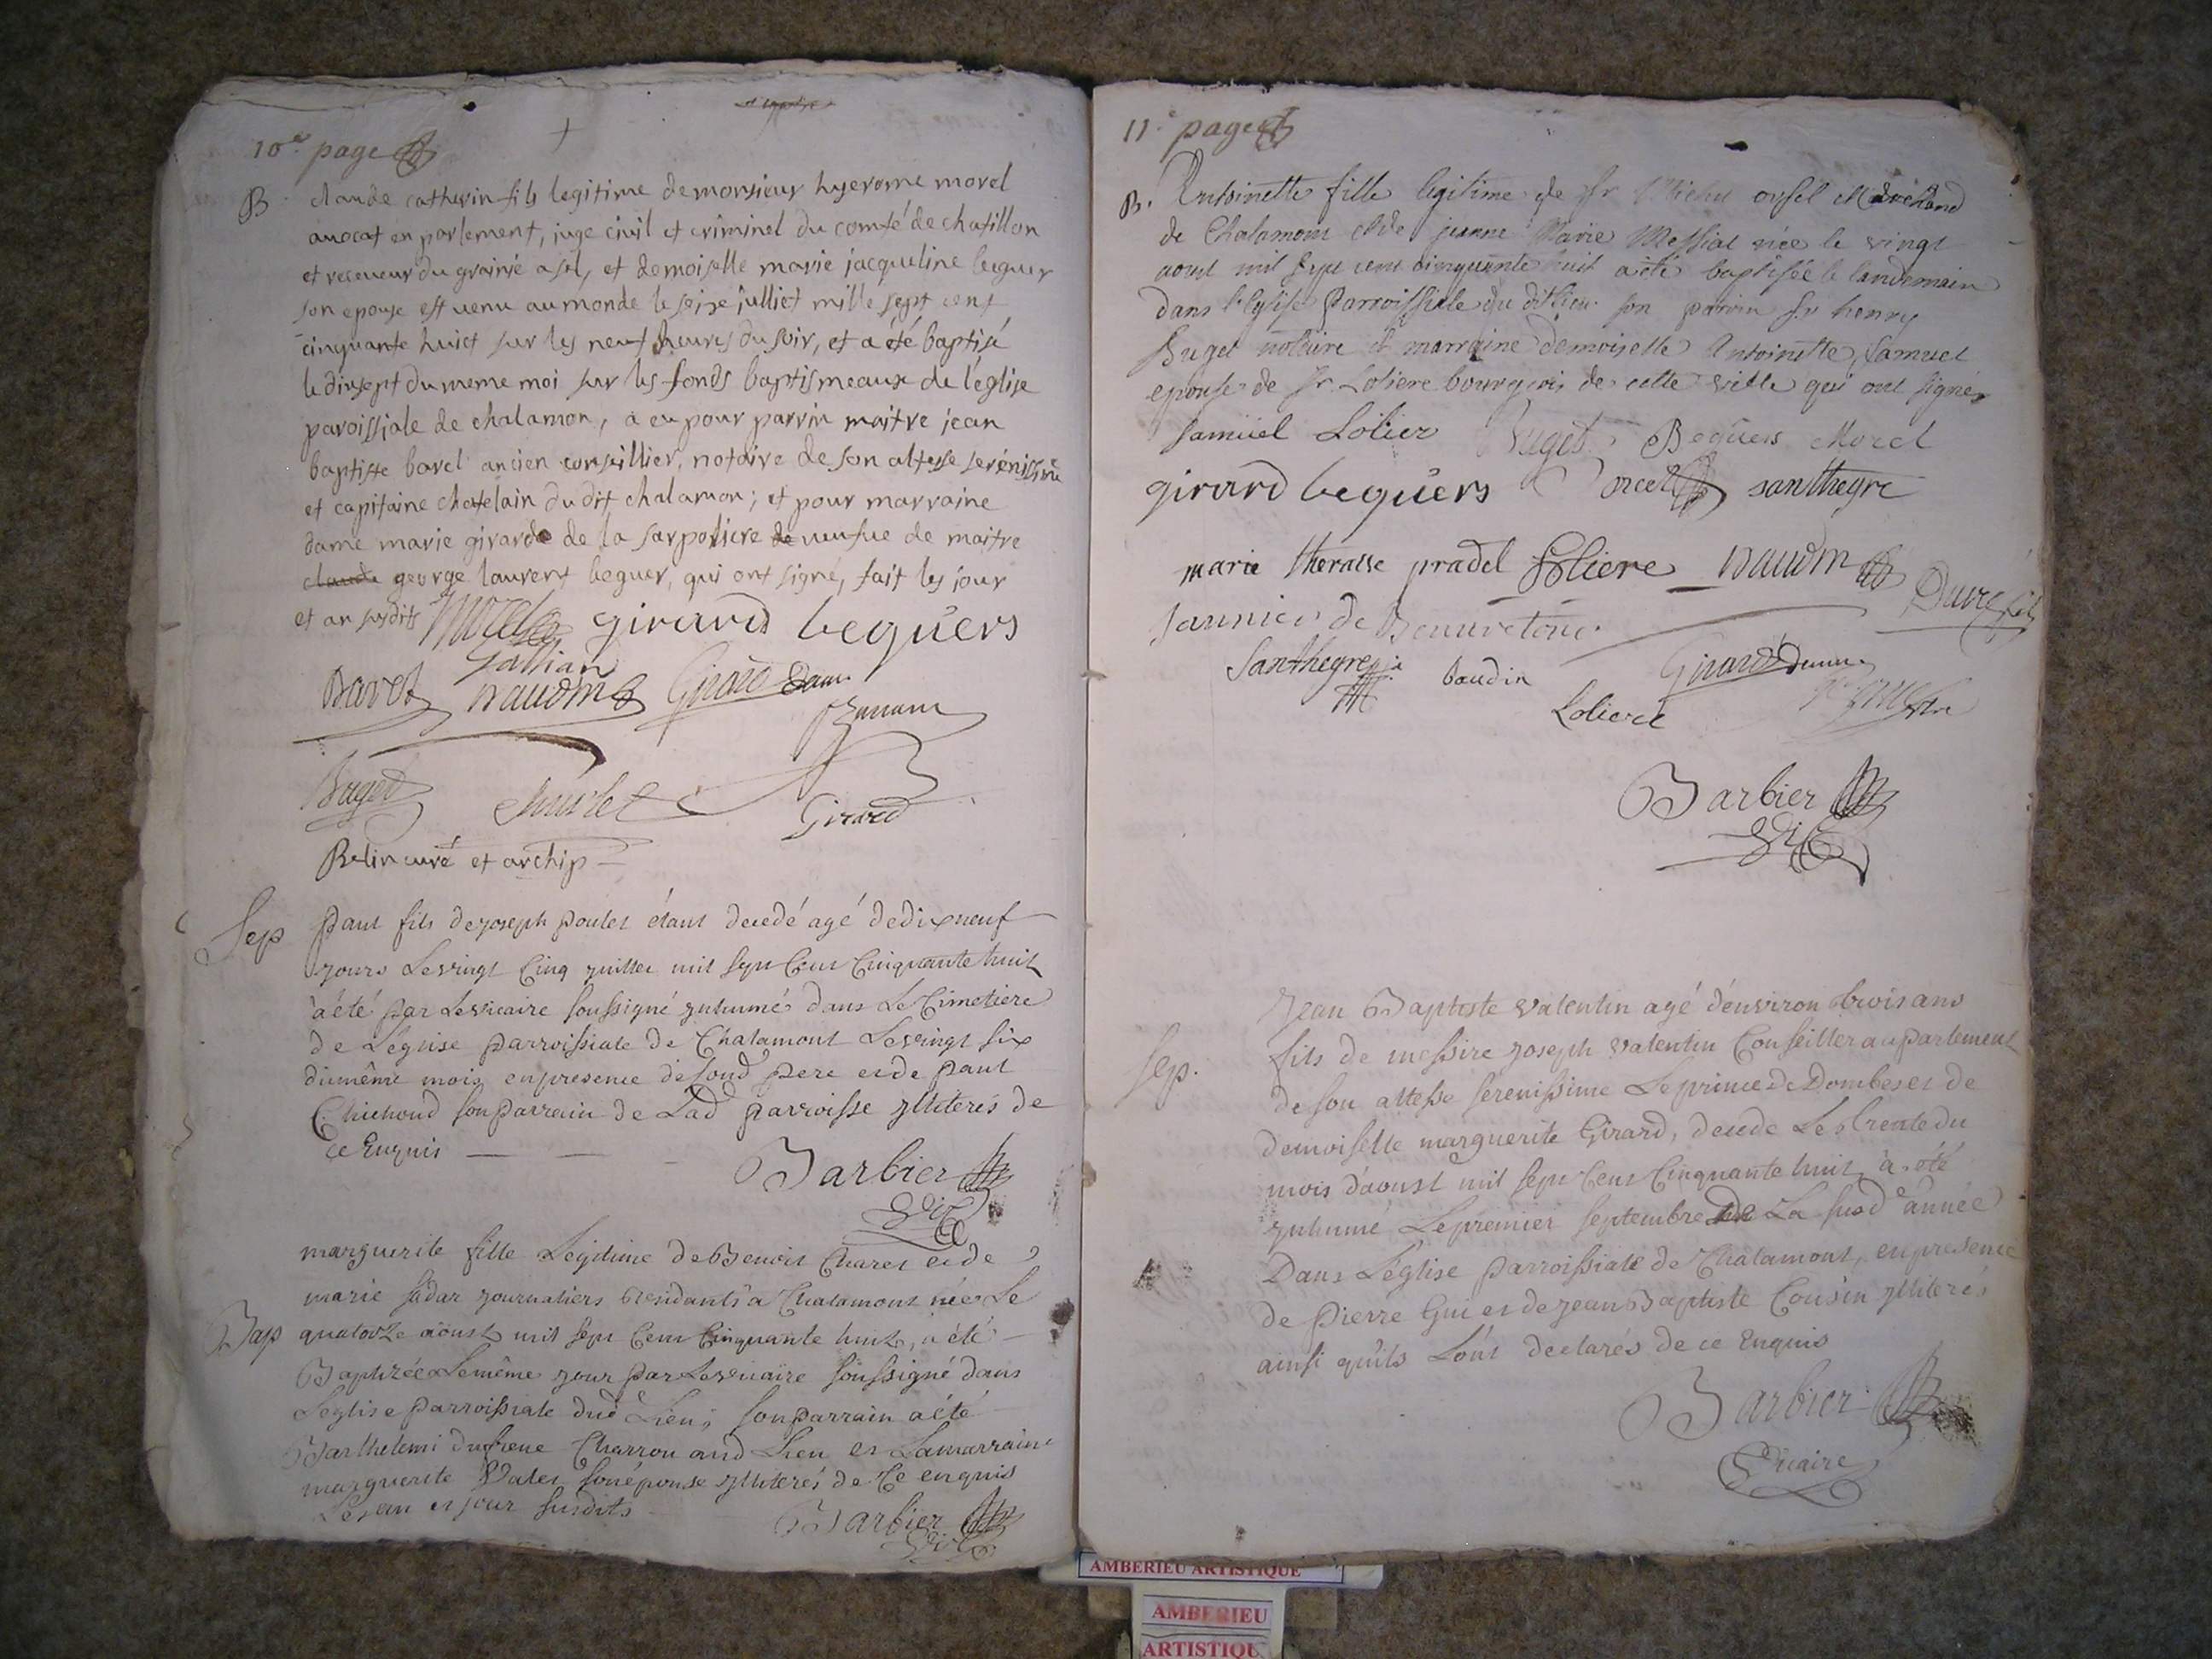 10e page
B. claude catherin fils legitime de monsieur hyerome morel
avocat en parlement, juge civil et criminel du comté de chatillon
et receveur du grainié a sel, et demoiselle marie jacqueline beguer
son epouse est venu au monde le seize julliet mille sept cent
cinquante huict sur les neuf heures du soir, et a été baptisé
le dixsept du meme moi sur les fonds baptismeaux de l'église
paroissiale de chalamon, a eu pour parrin maitre jean
baptiste bavet ancien conseillier, notaire de son altesse serénissime
et capitaine chatelain du dit chalamon; et pour marraine
dame marie girarde de la sarpoliere de veufue de maitre
claude george laurent beguer, qui ont signé, fait les jour
et an susdits Morel girard beguers
Bavet Baudin Girard
Buget Girard
Belin curé et archip
Sep paul fils de joseph poulet étant decedé agé de dix neuf
jours Le vingt Cinq juillet mil sept Cent Cinquante huit
à été par Le vicaire soussigné ynhumé dans Le Cimetiere
de Léglise parroissiale de Chalamont Le vingt six
du même mois en presence de sond pere et de paul
son parrain de Lad parroisse ylliterés de
ce Enquis
Barbier
vic
marguerite fille Legitime de Benoit Charet et de
marie journaliers residants à Chalamont née Le
Bap quatorze aoust mil sept Cent Cinquante huit, à été
Baptizée Le même jour par Le vicaire soussigné dans
Leglise parroissiale dud Lieu, son parrain a été
Barthelemi dufrene Charron aud Lieu et La marraine
marguerite son épouse ylliterés de Ce enquis
Les an et jour susdits
Barbier
vic
11e page
B. Antoinette fille legitime de Sr orsel Marchand
de Chalamont et de jeanne Marie Messiat née le vingt
aout mil sept cent cinquante huit a été baptisée le landemain
dans l'Eglise Parroissiale du dit lieu son parrin Sr henry
Buget notaire et marraine demoiselle Antoinette Samuel
epouse de Sr Loliere bourgeois de cette ville qui ont signés
Samüel Lolier Buget Beguers Morel
girard beguers orcel santhegre
marie therasse pradel Loliere Baudin
jannier de
Santhegre baudin Girard
Loliere
Barbier
vic
Jean Baptiste valentin agé d'environ trois ans
Sep. fils de messire joseph valentin Conseiller au parlement
de son altesse serenissime Le prince de Dombes et de
demoiselle marguerite Girard, decedé Le trente du
mois d'aoust mil sept Cent Cinquante huit, à été
ynhumé Le premier septembre de La susd année
Dans L'église parroissiale de Chalamont, en presence
de pierre Gui et de jean Baptiste Cousin yllitéres
ainsi qu'ils L'ont declarés de ce Enquis
Barbier
vicaire
AMBERIEU ARTISTIQUE
AMBERIEU
ARTISTIQU